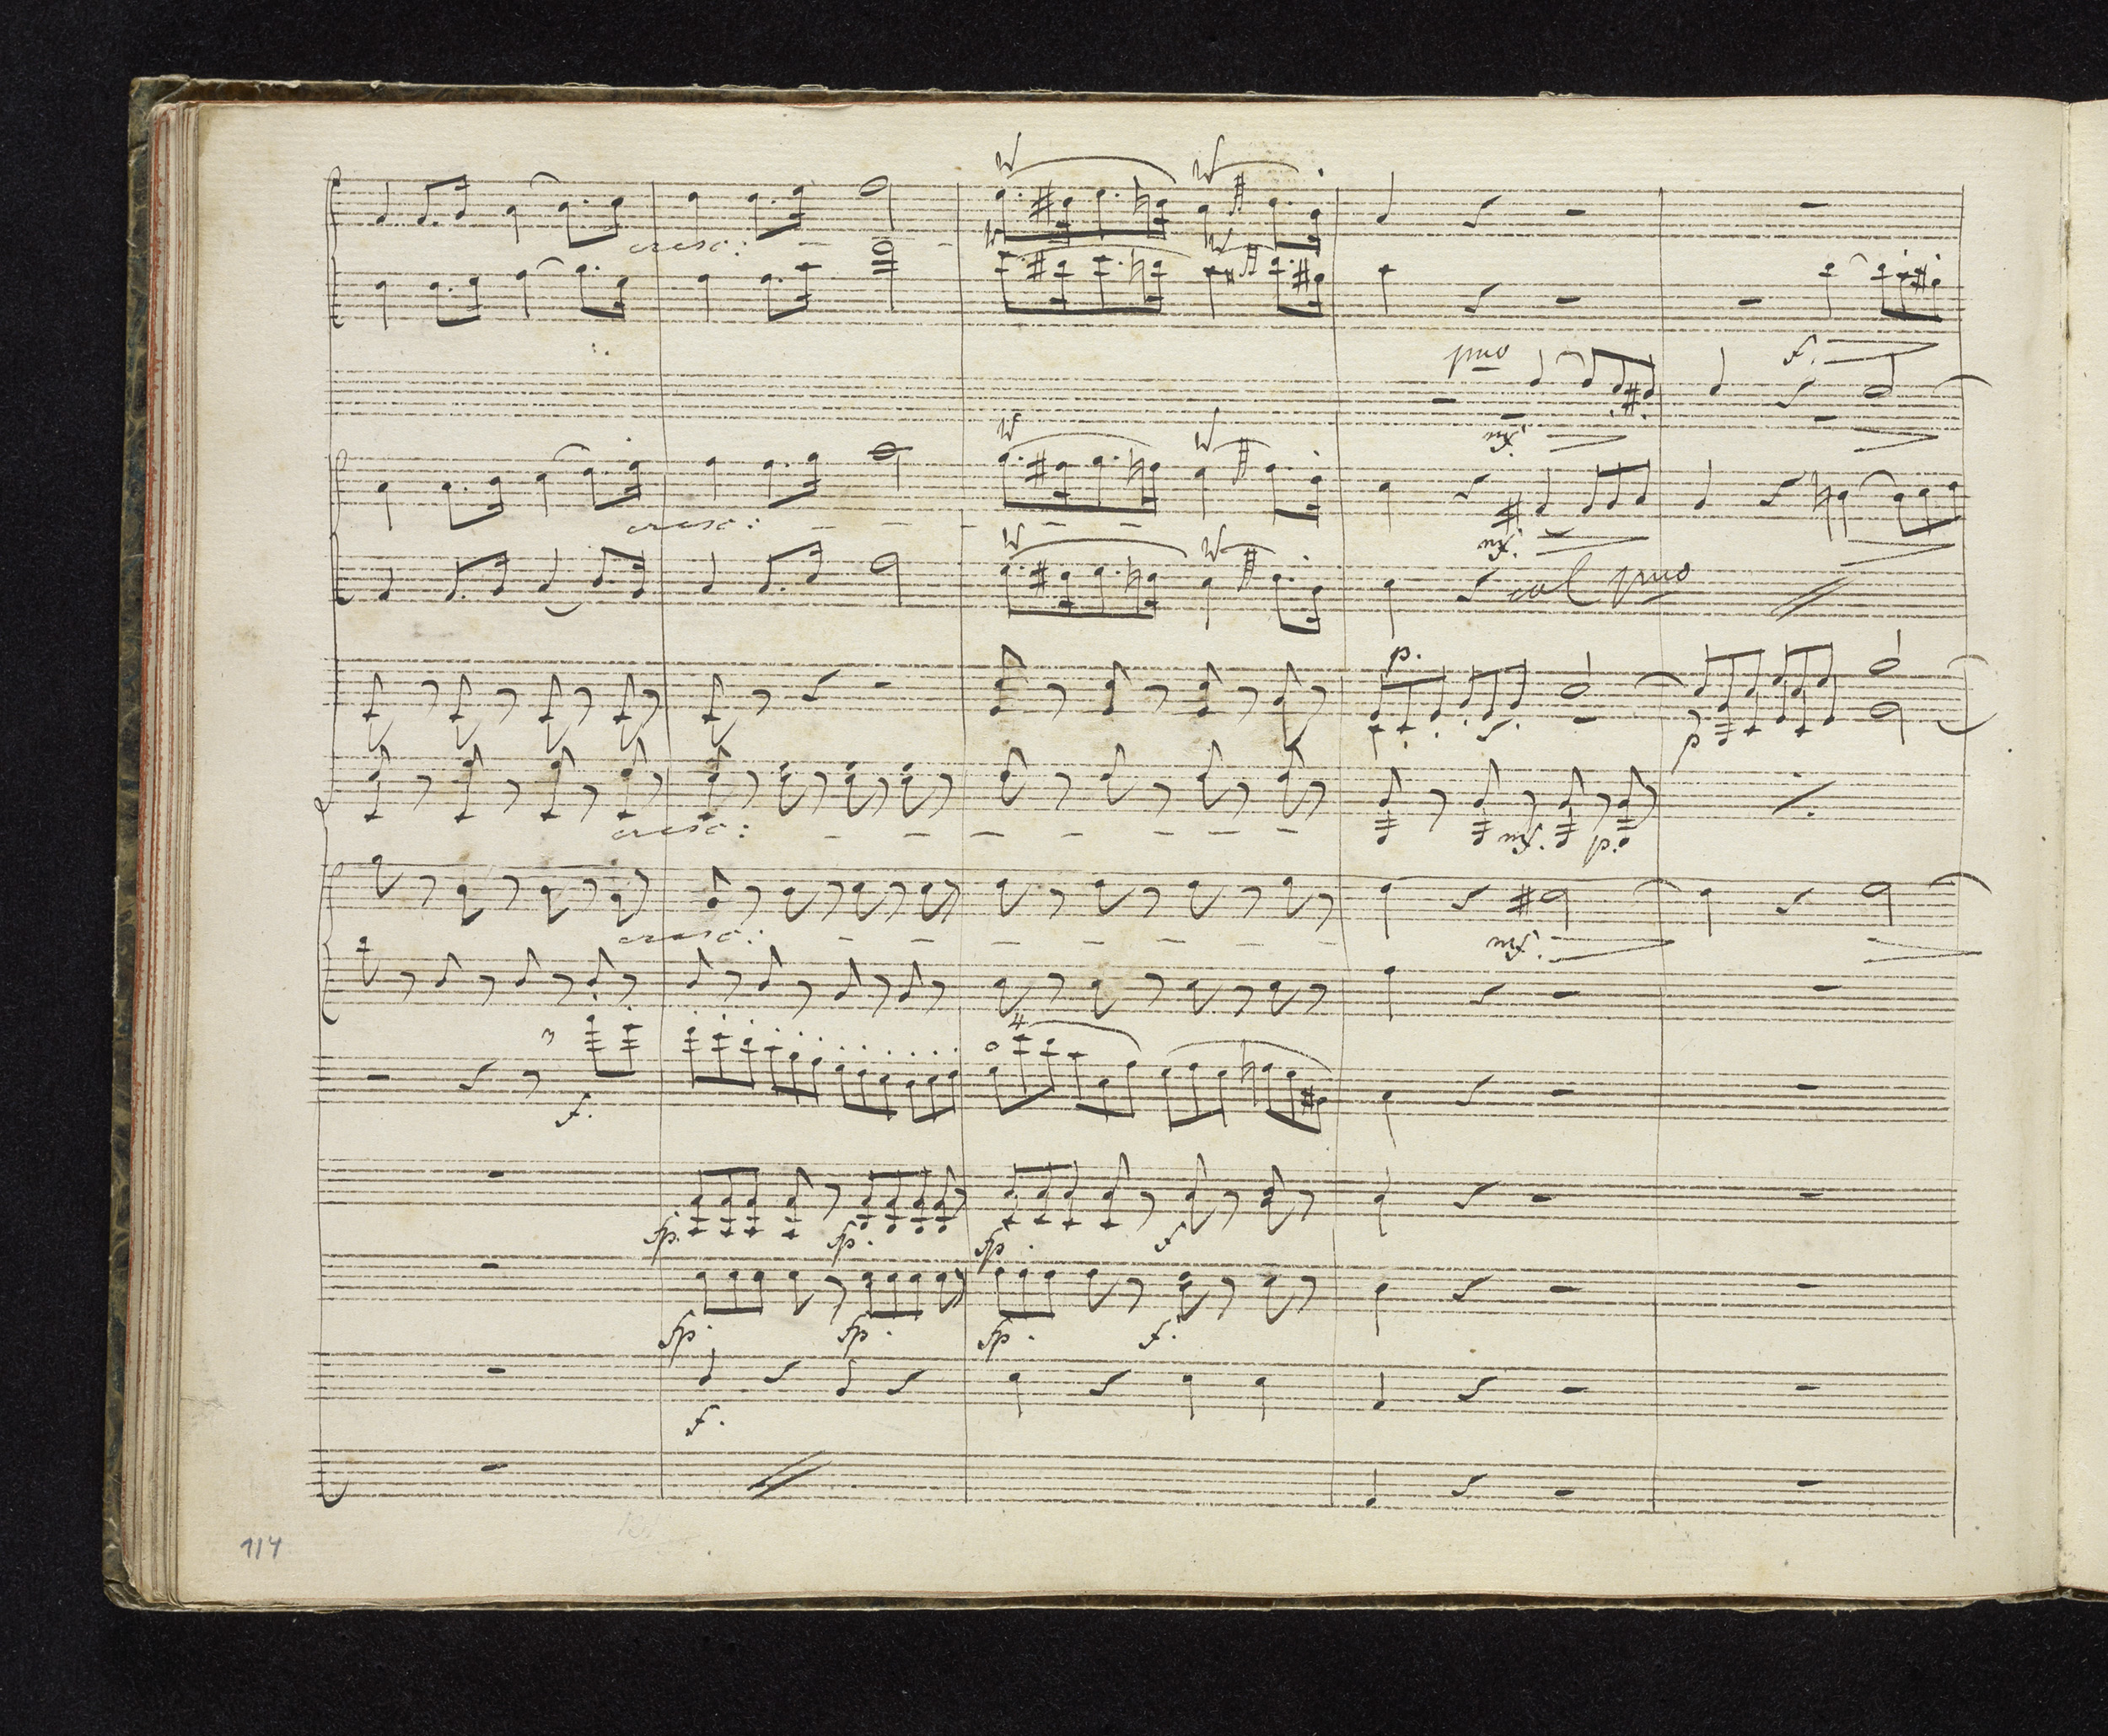 cresc:
pmo
f.
mf.
cresc:
mf.
col pmo
p.
p
cresc:
mf. p.
cresc:
mf.
3
4
o
f.
fp. fp. fp. f
fp. fp. fp. f.
f.
114